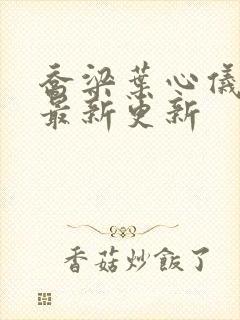 乔梁葉心儀
最新更新
香菇炒飯了